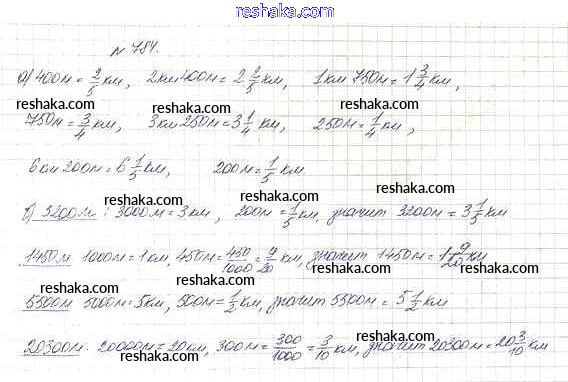 www.reshaka.ru
№ 784.
а) 400м = 2/5 км, 2км 400м = 2 2/5 км, 1км 750м = 1 3/4 км,
reshaka.com reshaka.com reshaka.com
750м = 3/4 км, 3км 250м = 3 1/4 км, 250м = 1/4 км,
reshaka.com reshaka.com
6км 200м = 6 1/5 км, 200м = 1/5 км.
reshaka.com reshaka.com
б) 3200м: 3000м = 3км, 200м = 1/5 км, значит 3200м = 3 1/5 км
reshaka.com reshaka.com
1450м 1000м = 1км, 450м = 450/1000 = 9/20 км, значит 1450м = 1 9/20 км
reshaka.com reshaka.com
5500м 5000м = 5км, 500м = 1/2 км, значит 5500м = 5 1/2 км
reshaka.com reshaka.com reshaka.com
20300м. 20000м = 20км, 300м = 300/1000 = 3/10 км, значит 20300м = 20 3/10 км
reshaka.com reshaka.com